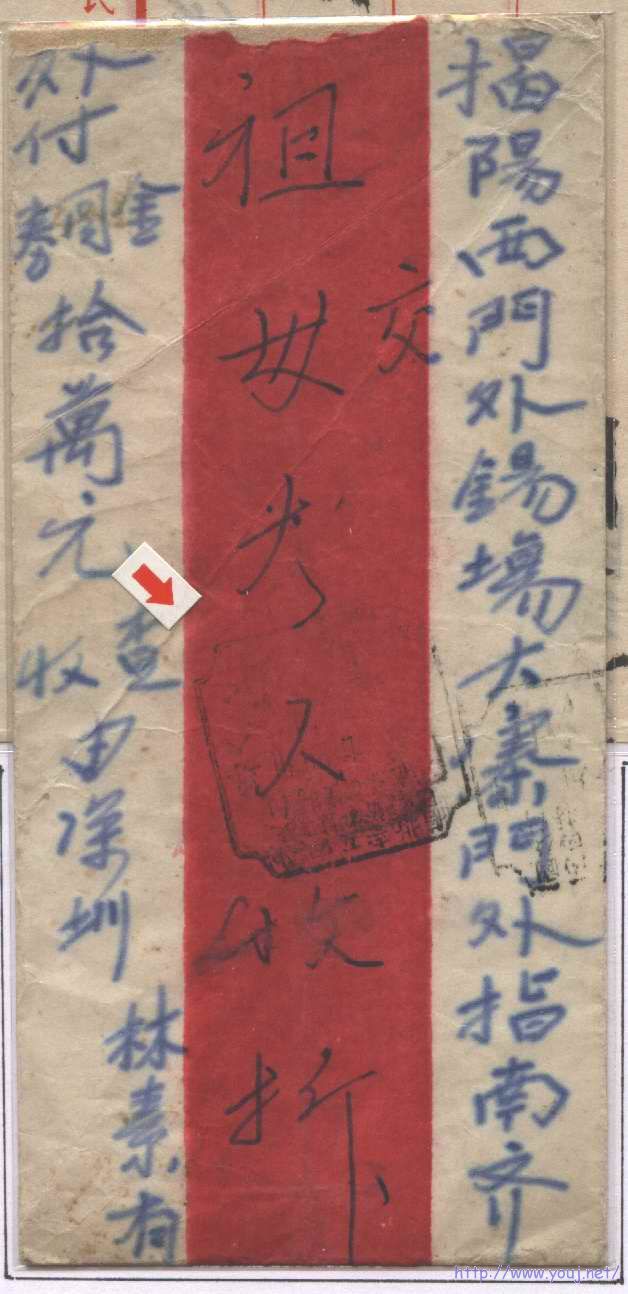 揭陽西門外錫場大寨門外指南齐
交
祖母大人收拆
外付金圓券拾萬元查收
由深圳
林素有
http://www.youj.net/